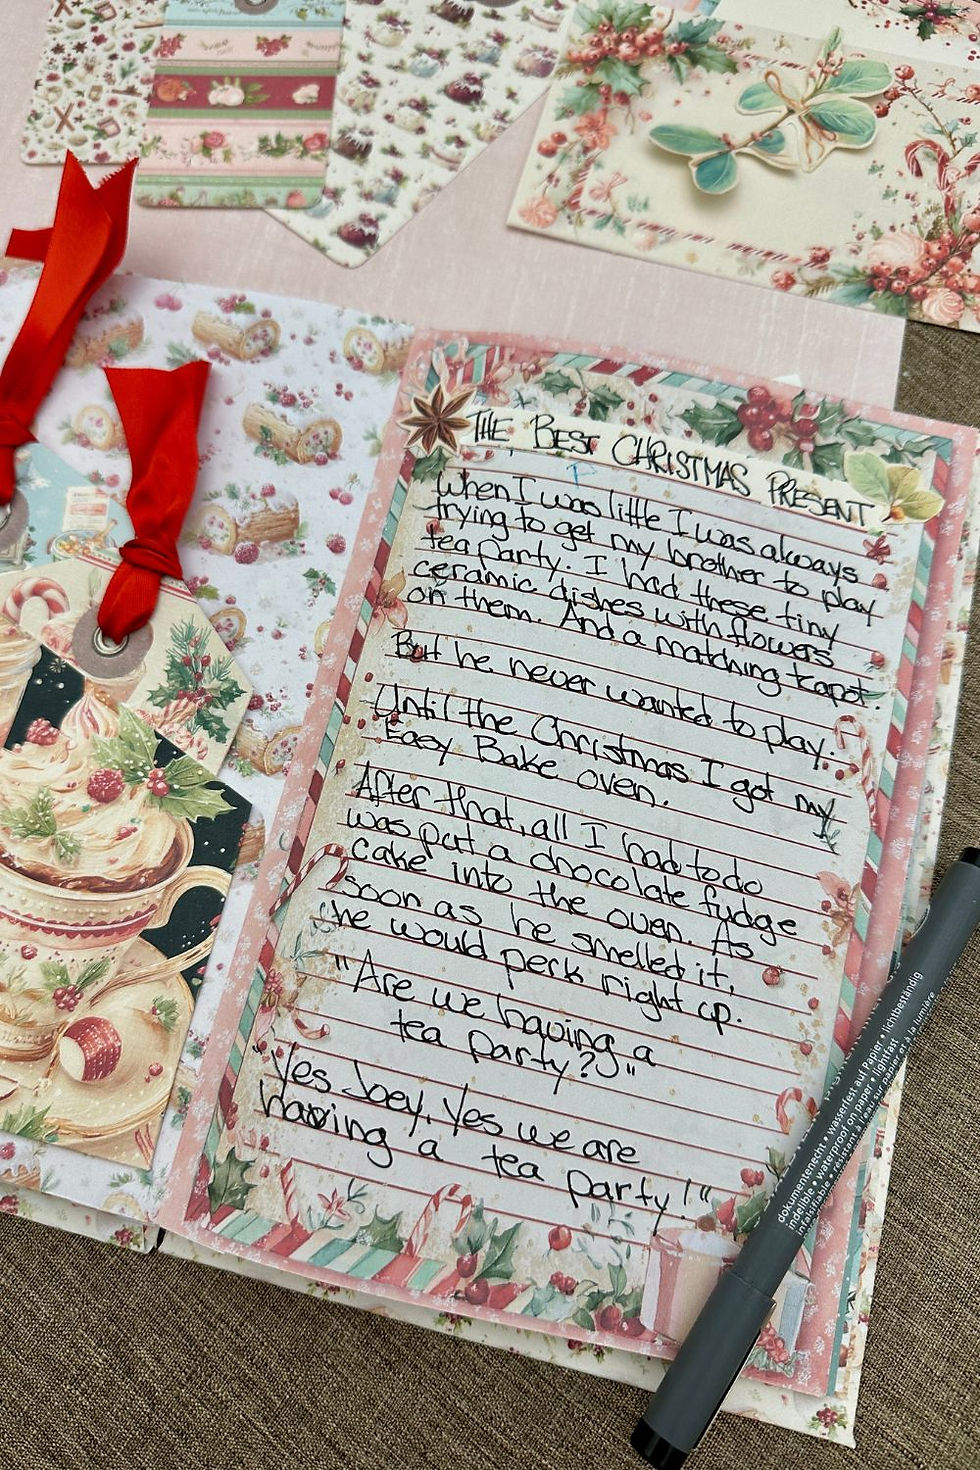 THE BEST CHRISTMAS PRESENT
When I was little I was always
trying to get my brother to play
tea party. I had these tiny
ceramic dishes with flowers
on them. And a matching teapot.
But he never wanted to play.
Until the Christmas I got my
Easy Bake oven.
After that, all I had to do
was put a chocolate fudge
cake into the oven. As
soon as he smelled it,
he would perk right up.
"Are we having a
tea party?"
"Yes Joey, Yes we are
having a tea party!"
dokumentenecht • wasserfest auf Papier • lichtbeständig
indelible • waterproof on paper • lightfast
infalsifiable • résistant à l'eau sur papier et à la lumière